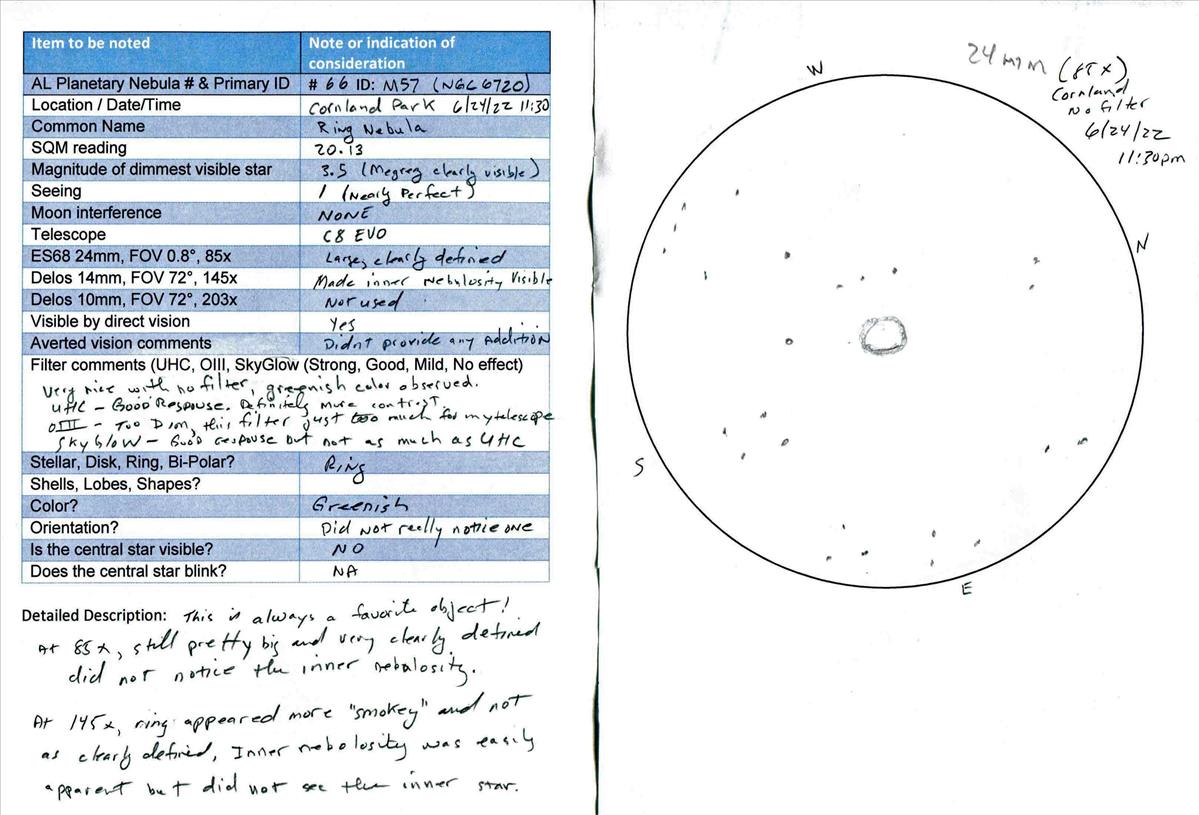 Item to be noted Note or indication of consideration
AL Planetary Nebula # & Primary ID # 66 ID: M57 (NGC 6720)
Location / Date/Time Cornland Park 6/24/22 11:30
Common Name Ring Nebula
SQM reading 20.13
Magnitude of dimmest visible star 3.5 (Megrez clearly visible)
Seeing 1 (Nearly Perfect)
Moon interference NONE
Telescope C8 EVO
ES68 24mm, FOV 0.8°, 85x Large, clearly defined
Delos 14mm, FOV 72°, 145x Made inner nebulosity visible
Delos 10mm, FOV 72°, 203x Not used
Visible by direct vision Yes
Averted vision comments Didnt provide any Addition
Filter comments (UHC, OIII, SkyGlow (Strong, Good, Mild, No effect)
Very nice with no filter, greenish color observed.
UHC – Good Response. Definitely more contrast.
OIII – Too Dim, this filter just too much for my telescope
SkyGlow – Good response but not as much as UHC
Stellar, Disk, Ring, Bi-Polar? Ring
Shells, Lobes, Shapes?
Color? Greenish
Orientation? Did not really notice one
Is the central star visible? NO
Does the central star blink? NA
Detailed Description: This is always a favorite object!
At 85x, still pretty big and very clearly defined
did not notice the inner nebulosity.
At 145x, ring appeared more "smokey" and not
as clearly defined, Inner nebolosity was easily
apparent but did not see the inner star.
24mm (85x)
Cornland
No filter
6/24/22
11:30pm
W
N
S
E